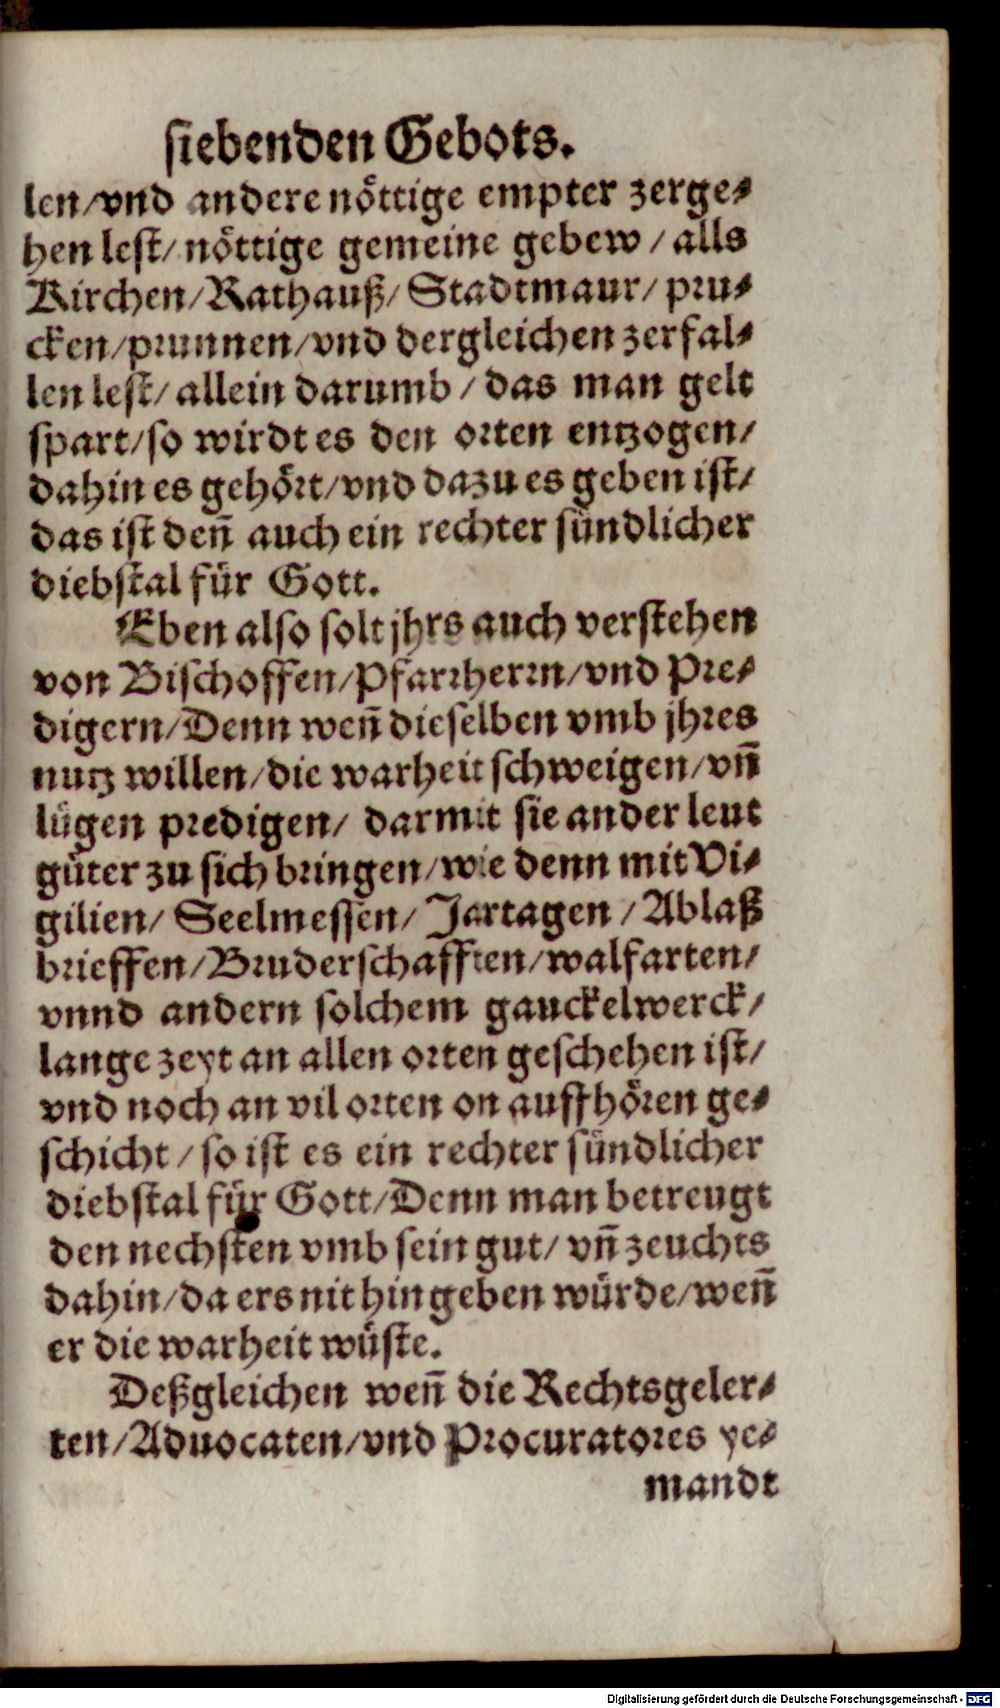 siebenden Gebots.
len/vnd andere nöttige empter zerge⸗
hen lest/ nöttige gemeine gebew / alls
Kirchen/Rathauß/ Stadtmaur/ pru⸗
cken/prunnen/vnd dergleichen zerfal⸗
len lest/ allein darumb / das man gelt
spart/so wirdt es den orten entzogen/
dahin es gehört/vnd dazu es geben ist/
das ist deñ auch ein rechter sündlicher
diebstal für Gott.
Eben also solt jhrs auch verstehen
von Bischoffen/Pfarrherrn/vnd Pre⸗
digern/Denn weñ dieselben vmb jhres
nutz willen/die warheit schweigen/vñ
lügen predigen/ darmit sie ander leut
güter zu sich bringen/wie denn mit Vi⸗
gilien/ Seelmessen/ Jartagen /Ablaß
brieffen/Bruderschafften/walfarten/
vnnd andern solchem gauckelwerck/
lange zeyt an allen orten geschehen ist/
vnd noch an vil orten on auffhören ge⸗
schicht / so ist es ein rechter sündlicher
diebstal für Gott/Denn man betreugt
den nechsten vmb sein gut/ vñ zeuchts
dahin/da ers nit hin geben würde/weñ
er die warheit wüste.
Deßgleichen weñ die Rechtsgeler⸗
ten/Aduocaten/vnd Procuratores ye⸗
mandt
Digitalisierung gefördert durch die Deutsche Forschungsgemeinschaft - DFG